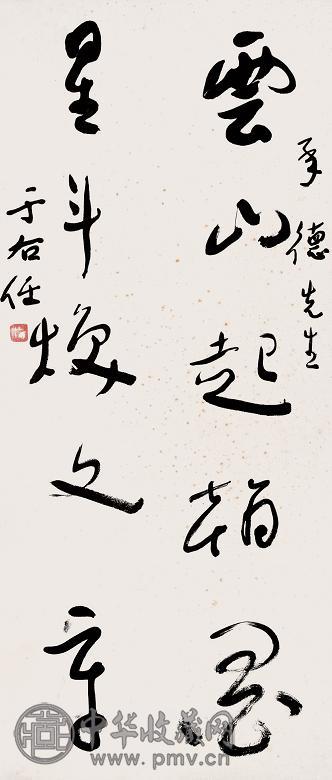 承德先生
雲山起翰墨
星斗煥文章
于右任
中华收藏网
www.pmv.cn